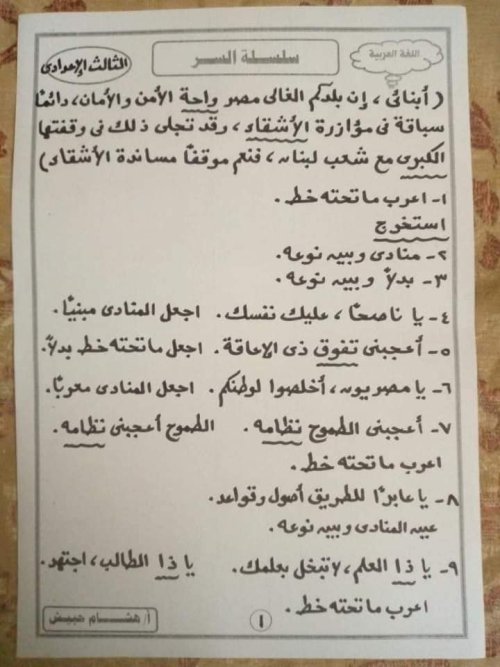 اللغة العربية
سلسلة السر
الثالث الإعدادى
( أبنائى ، إن بلدكم الغالى مصر واحة الأمن والأمان، دائمًا
سباقة فى مؤازرة الأشقاء ، وقد تجلى ذلك فى وقفتها
الكبرى مع شعب لبنان ، فنعم موقفًا مساندة الأشقاء )
١- اعرب ما تحته خط .
استخرج
٢- منادى وبين نوعه .
٣- بدلًا وبين نوعه .
٤- يا ناصحًا ، عليك نفسك . اجعل المنادى مبنيًا .
٥- أعجبنى تفوق ذى الإعاقة . اجعل ما تحته خط بدلًا .
٦- يا مصريون ، أخلصوا لوطنكم . اجعل المنادى معربًا .
٧- أعجبنى الطموح نظامه . الطموح أعجبنى نظامه .
اعرب ما تحته خط .
٨- يا عابرًا للطريق أصول وقواعد .
عين المنادى وبين نوعه .
٩- يا ذا العلم ، لا تبخل بعلمك . يا ذا الطالب ، اجتهد .
اعرب ما تحته خط .
١
أ/ هشام حبيش